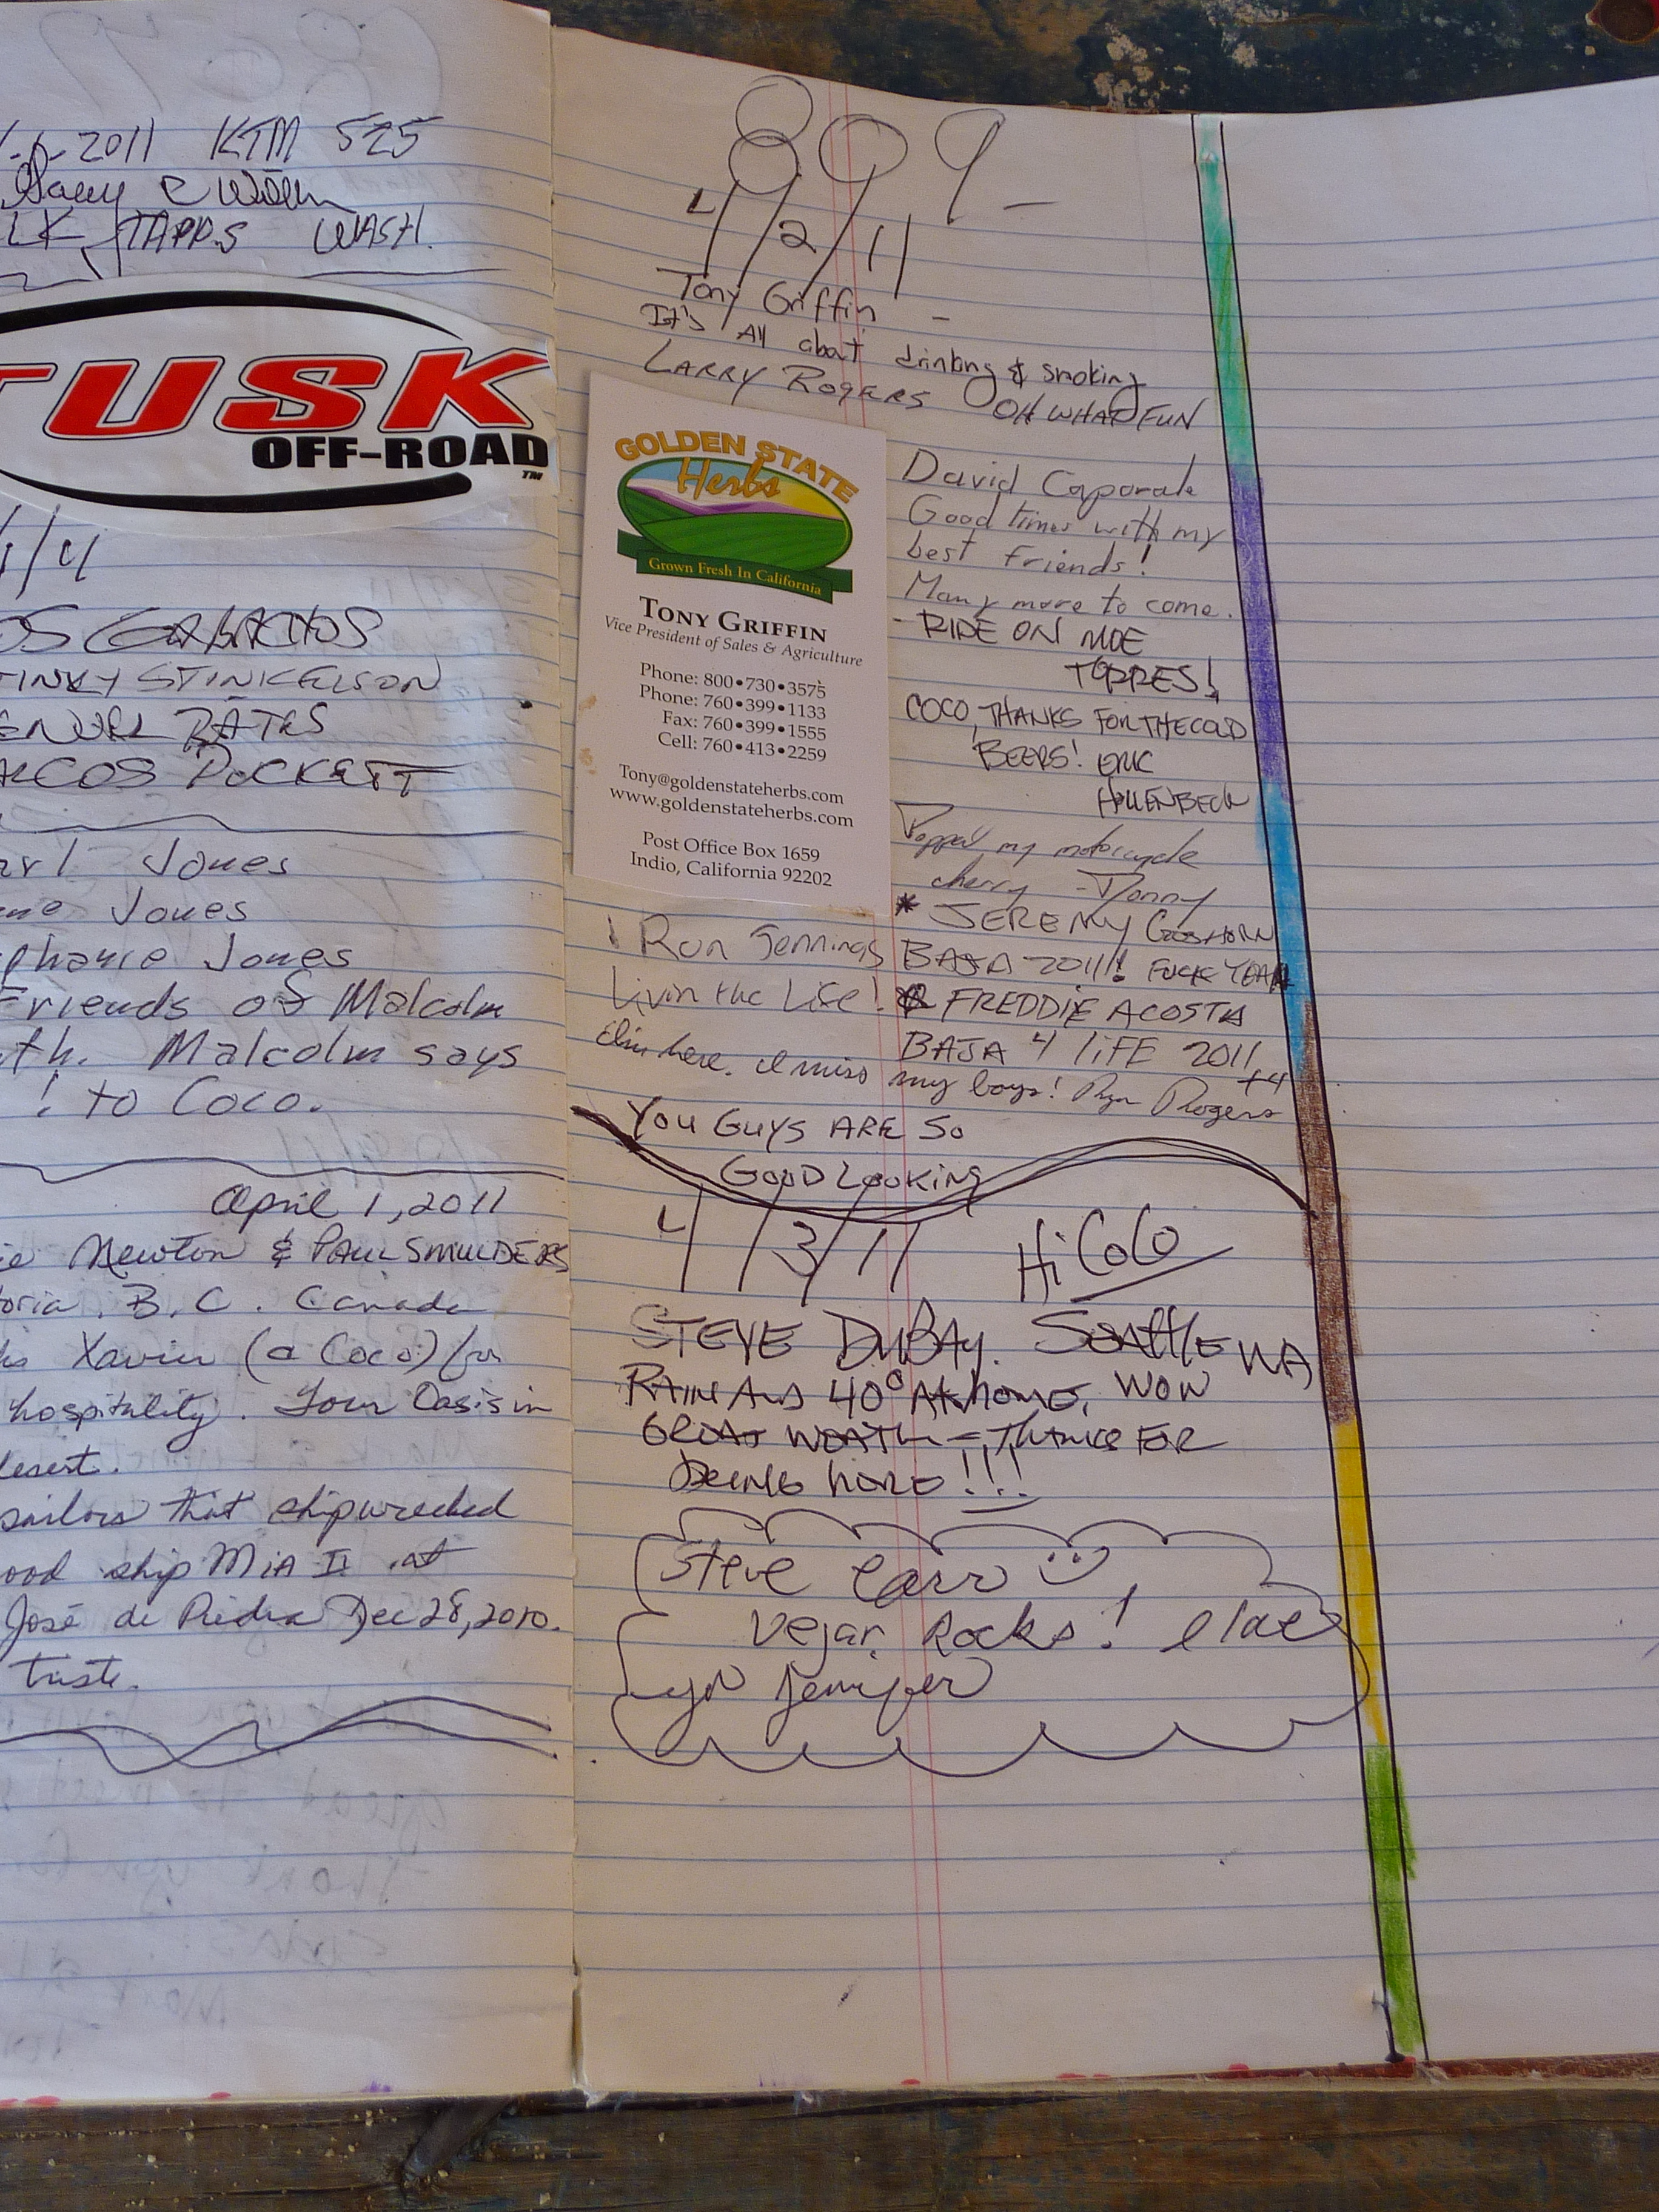 2011 KTM 525
LK TAPPS WASH.
TUSK
OFF-ROAD
TM
STINKELSON
BATES
Jones
Jones
Jones
Friends of Malcolm
Malcolm says
! to Coco.
April 1, 2011
Newton & PAUL SMULDERS
B.C. Canada
Xavier (a Coco) for
hospitality. Your Oasis in
sailors that shipwrecked
ship MIA II at
José de Piedra Dec 28, 2010.
triste.
809-
4/2/11
Tony Griffin -
It's All about drinking & smoking
LARRY ROGERS OH WHAT FUN
GOLDEN STATE
Herbs
Grown Fresh In California
TONY GRIFFIN
Vice President of Sales & Agriculture
Phone: 800•730•3575
Phone: 760•399•1133
Fax: 760•399•1555
Cell: 760•413•2259
Tony@goldenstateherbs.com
www.goldenstateherbs.com
Post Office Box 1659
Indio, California 92202
David Caporale
Good times with my
best friends!
Many more to come.
- RIDE ON MOE
TORRES!
COCO, THANKS FOR THE COLD
BEERS! ERIC
HOLLENBECK
Popped my motorcycle
cherry - Donny
* JEREMY GOSHORN
BAJA 2011! FUCK YEAH
FREDDIE ACOSTA
BAJA 4 LIFE 2011
+4
Ron Jennings
Livin the Life!
I'm here. I miss my boys! Rogers
YOU GUYS ARE SO
GOOD LOOKING
4/3/11 Hi CoCo
STEVE DUBAY. SEATTLE WA
RAIN AND 40° AT HOME, WOW
GREAT WEATH - THANKS FOR
BEING HERE!!!
Steve Carr
Vejar Rocks!
Lyn Jennifer